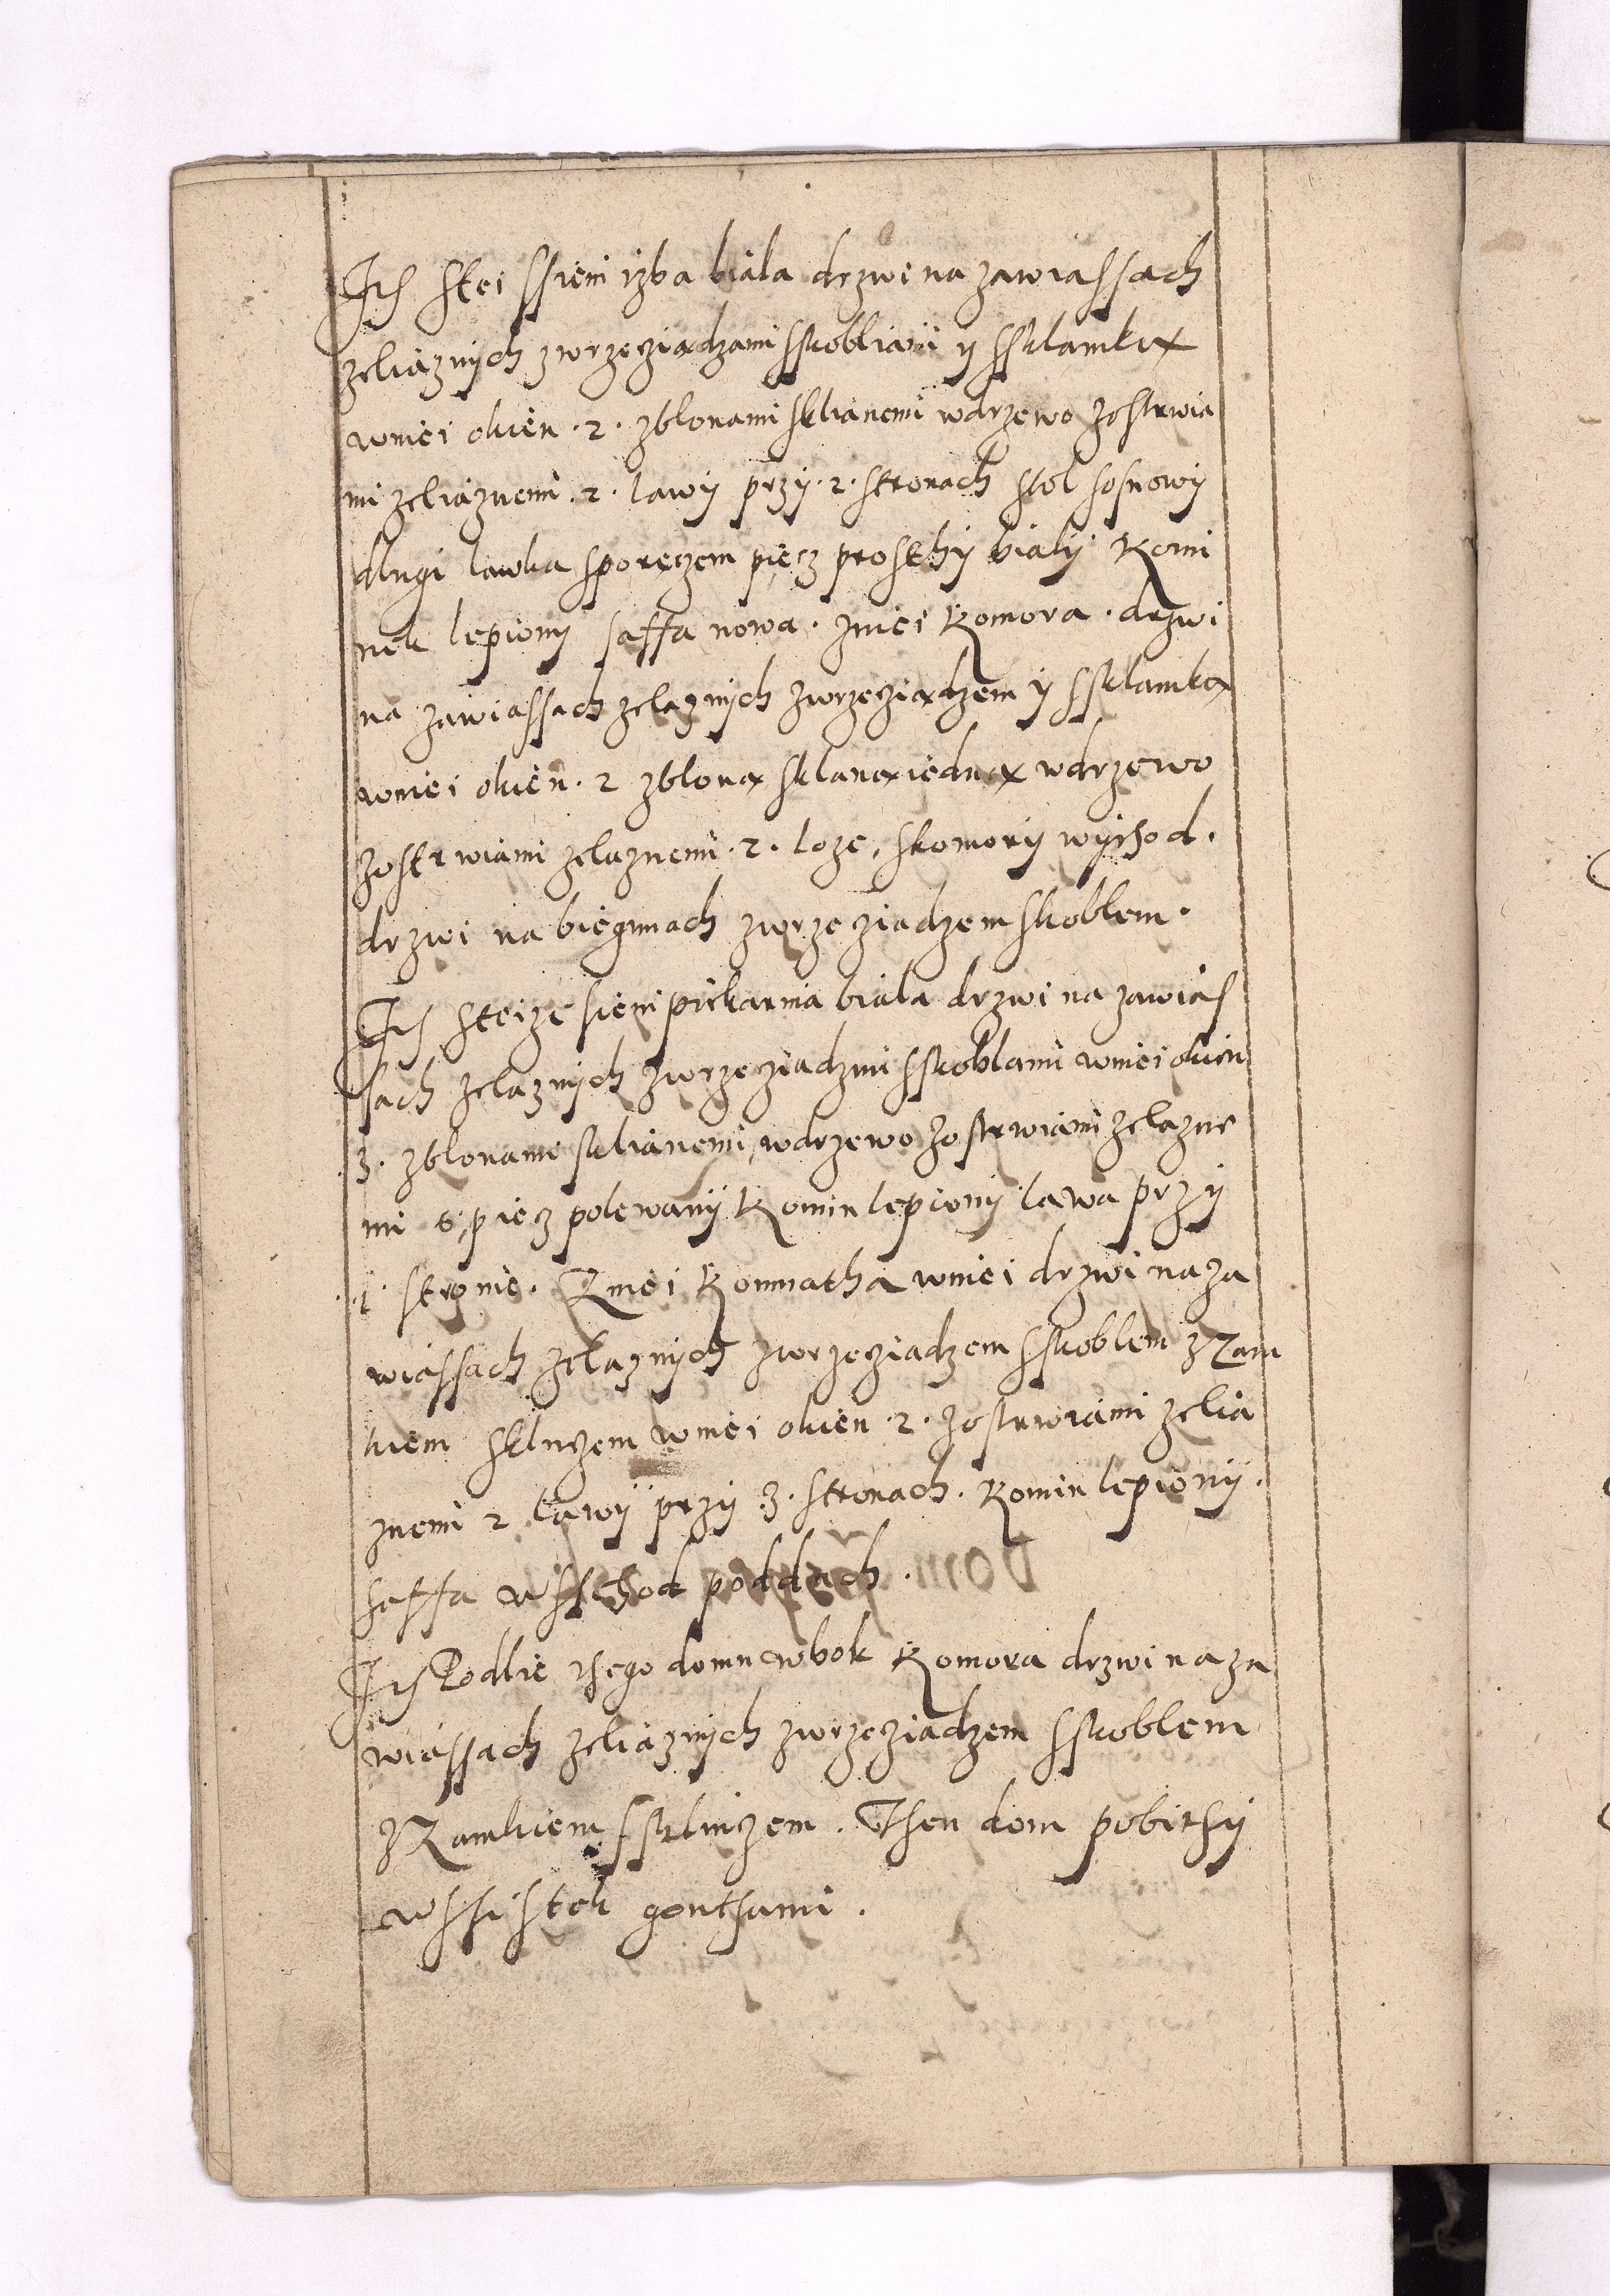 Its stei ssieni izba biala drzwi na zawiassach
zeliaznych zwrzecziadzami sskobliami y ssklamką
wniei okien . 2 . zblonami sklianemi wdrzewo zostrwia
mi zeliaznemi . 2 . lawy przy . 2 . stronach stol sosnowy
dlugi lawka sporęczem piecz prosthy bialy Komi
nek lepiony saffa nowa . zniei Komora . drzwi
na zawiassach zelaznych zwrzecziądzem y ssklamką
wniei okien . 2 zbloną sklaną iedną wdrzewo
zostrwiami zelaznemi . 2 . loze , skomory wychod .
drzwi na biegunach zwrzecziadzem skoblem .
Its steize sieni piekarnia biala drzwi na zawias
sach zelaznych zwrzecziadzmi sskoblami wniei okien
. 3 . zblonami sklianemi, wdrzewo zostrwiami zelazne
mi 6, piecz polewany Komin lepiony lawa przy
. 1 . stronie . Zniei Komnatha wniei drzwi na za
wiassach zelaznych zwrzecziadzem sskoblem zZam
kiem skluczem wniei okien . 2 . zostrwiami zelia
znemi 2 lawy przy . 3 . stronach . Komin lepiony .
saffa wsschod poddach .
Its Podlie thego domu wbok Komora drzwi na za
wiassach zeliaznych zwrzecziadzem sskoblem
zZamkiem sskluczem . Then dom pobithy
wssistek gonthami .